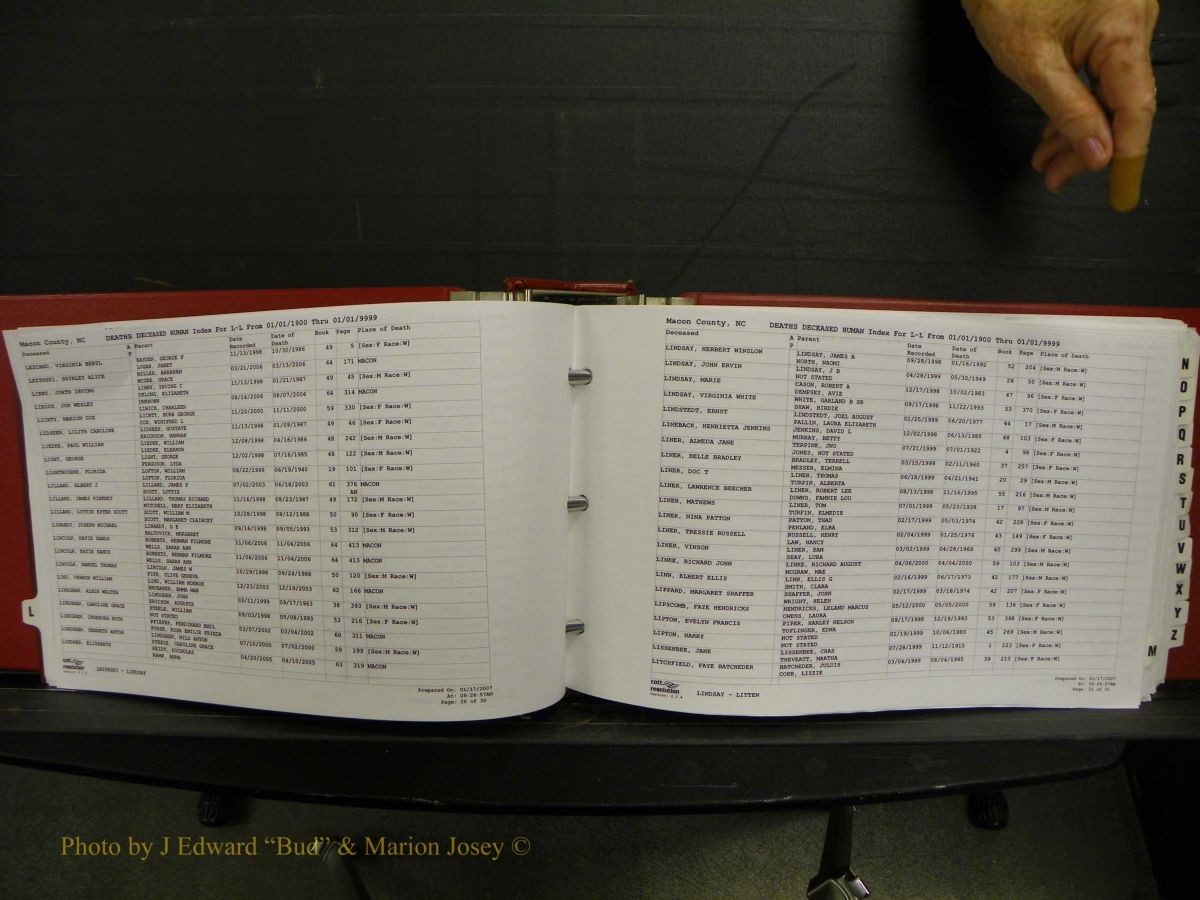 Macon County, NC DEATHS DECEASED HUMAN Index For L-L From 01/01/1900 Thru 01/01/9999
Deceased A Parent Date Recorded Date of Death Book Page Place of Death
P
LESCANO, VIRGINIA BERYL HAYDEN, GEORGE P 11/13/1998 10/30/1986 49 5 [Sex:F Race:W]
LOGAN, JANET
LESINSKI, SHIRLEY ALICE MILLER, ABRAHAM 03/21/2006 03/13/2006 64 171 MACON
MCGEE, GRACE
LIBBY, JUSTN IRVING LIBBY, IRVING C 11/13/1998 01/21/1987 49 45 [Sex:M Race:W]
DELONG, ELIZABETH
LIBICH, JON WESLEY UNKNOWN 08/14/2006 08/07/2006 64 314 MACON
LIBICH, CHARLEEN
LICHTY, MARION COX LICHTY, BURA GEORGE 11/20/2000 11/11/2000 59 330 [Sex:F Race:W]
COX, WINIFRED L
LIDHEEN, LILITH CAROLINE LIDHEEN, GUSTAVE 11/13/1998 01/09/1987 49 46 [Sex:F Race:W]
ERICKSON, HANNAH
LIEDKE, PAUL WILLIAM LIEDKE, WILLIAM 12/08/1998 04/16/1986 48 242 [Sex:M Race:W]
LIEDKE, ELEANOR
LIGHT, GEORGE LIGHT, GEORGE 12/02/1998 07/16/1985 48 122 [Sex:M Race:W]
FERGUSON, LYDA
LIGHTBOURNE, FLORIDA LOFTON, WILLIAM 06/22/1999 06/19/1940 19 101 [Sex:F Race:W]
LOFTON, FLORIDA
LILLARD, ALBERT J LILLARD, JAMES P 07/02/2003 06/18/2003 61 376 MACON
SCOTT, LOTTIE AB
LILLARD, JAMES PINKNEY LILLARD, THOMAS RICHARD 11/16/1998 08/23/1987 49 172 [Sex:M Race:W]
MITCHELL, MARY ELIZABETH
LILLARD, LOTTIE ESTER SCOTT SCOTT, WILLIAM M 10/28/1998 08/12/1988 50 90 [Sex:F Race:W]
SCOTT, MARGARET CLAIRCEY
LINARDY, JOSEPH MICHAEL LINARDY, D E 09/16/1998 09/05/1993 53 312 [Sex:M Race:W]
BALTOVICH, MARGARET
LINCOLN, KATIE SANDS ROBERTS, HERMAN FILMORE 11/06/2006 11/04/2006 64 413 MACON
WELLS, SARAH ANN
LINCOLN, KATIE SANDS ROBERTS, HERMAN FILMORE 11/06/2006 11/04/2006 64 413 MACON
WELLS, SARAH ANN
LINCOLN, SAMUEL THOMAS LINCOLN, JAMES W 10/29/1998 09/24/1988 50 120 [Sex:M Race:W]
FIFE, OLIVE GENEVA
LIND, VERNON WILLIAM LIND, WILLIAM MONROE 12/23/2003 12/19/2003 62 166 MACON
BRUBAKER, EMMA MAE
LINDGREN, ALBIN WALTER LINDGREN, JOHN 03/11/1999 09/17/1963 38 393 [Sex:M Race:W]
ERICSON, AUGUSTA
LINDGREN, CAROLINE GRACE STEELE, WILLIAM 09/03/1998 05/08/1993 53 216 [Sex:F Race:W]
NOT STATED
LINDGREN, INGEBORG RUTH PFIEFER, FERDINAND EMIL 03/07/2002 03/04/2002 60 311 MACON
FUHSE, ROSA EMILIE FRIEDA
LINDGREN, KENNETH ANTON LINDGREN, NILS ANTON 07/10/2000 07/02/2000 59 199 [Sex:M Race:W]
STEELE, CAROLINE GRACE
LINDNER, ELIZABETH HEIDT, NICHOLAS 04/20/2005 04/19/2005 63 319 MACON
RAMP, ANNA
cott resolution
LESINSKI - LINDSAY
Prepared On: 01/17/2007
At: 09:26:57AM
Page: 20 of 30
L
Macon County, NC DEATHS DECEASED HUMAN Index For L-L From 01/01/1900 Thru 01/01/9999
Deceased A Parent Date Recorded Date of Death Book Page Place of Death
P
LINDSAY, HERBERT WINSLOW LINDSAY, JAMES A 09/28/1998 01/16/1992 52 204 [Sex:M Race:W]
NORTH, NAOMI
LINDSAY, JOHN ERVIN LINDSAY, J D 04/28/1999 05/30/1949 28 50 [Sex:M Race:W]
NOT STATED
LINDSAY, MARIE CASON, ROBERT A 12/17/1998 10/02/1983 47 96 [Sex:F Race:W]
DEMPSEY, AVIE
LINDSAY, VIRGINIA WHITE WHITE, GARLAND B SR 09/17/1998 11/22/1993 53 370 [Sex:F Race:W]
SHAW, BIRDIE
LINDSTEDT, ERNST LINDSTEDT, JOEL AUGUST 01/25/1999 06/20/1977 44 17 [Sex:M Race:W]
PALLIN, LAURA ELIZABETH
LINEBACK, HENRIETTA JENKINS JENKINS, DAVID L 12/02/1998 06/13/1985 48 103 [Sex:F Race:W]
MURRAY, BETTY
LINER, ALMEDA JANE TERPINE, JNO 07/21/1999 07/01/1922 4 98 [Sex:F Race:W]
JONES, NOT STATED
LINER, BELLE BRADLEY BRADLEY, TERRELL 03/15/1999 02/11/1960 37 257 [Sex:F Race:W]
MESSER, ELMINA
LINER, DOC T LINER, THOMAS 06/18/1999 04/21/1941 20 29 [Sex:M Race:W]
TURPIN, ALBERTA
LINER, LAWRENCE BEECHER LINER, ROBERT LEE 08/13/1998 11/16/1995 55 216 [Sex:M Race:W]
DOWNS, FANNIE LOU
LINER, MATHEWS LINER, TOM 07/01/1999 05/23/1938 17 87 [Sex:M Race:W]
TURFIN, ELMEDIE
LINER, NINA PATTON PATTON, THAD 02/17/1999 05/03/1974 42 228 [Sex:F Race:W]
PENLAND, ELBA
LINER, TRESSIE RUSSELL RUSSELL, HENRY 02/04/1999 01/25/1976 43 149 [Sex:F Race:W]
LAW, NANCY
LINER, VINSON LINER, SAM 03/02/1999 04/28/1969 40 299 [Sex:M Race:W]
SEAY, LURA
LINKE, RICHARD JOHN LINKE, RICHARD AUGUST 04/06/2000 04/04/2000 59 103 [Sex:M Race:W]
MCGRAW, MAE
LINN, ELBERT ELLIS LINN, ELLIS G 02/16/1999 06/17/1973 42 177 [Sex:M Race:W]
SMITH, CLARA
LIPPARD, MARGARET SHAFFER SHAFFER, JOHN 02/17/1999 03/18/1974 42 207 [Sex:F Race:W]
WRIGHT, HELEN
LIPSCOMB, FAYE HENDRICKS HENDRICKS, LELAND MARCUS 05/12/2000 05/05/2000 59 136 [Sex:F Race:W]
OWENS, LAURA
LIPTON, EVELYN FRANCIS PIPER, HARLEY NELSON 09/17/1998 12/19/1993 53 398 [Sex:F Race:W]
TOFLINGER, EDNA
LIPTON, HARRY NOT STATED 01/19/1999 10/06/1980 45 269 [Sex:M Race:W]
NOT STATED
LISSENBEE, JANE LISSENBEE, CHAS 07/28/1999 11/12/1915 1 223 [Sex:F Race:W]
THEVEATT, MARTHA
LITCHFIELD, FAYE BATCHEDER BATCHEDER, JULUIS 03/04/1999 08/04/1965 39 210 [Sex:F Race:W]
COBB, LIZZIE
cott resolution
LINDSAY - LITTEN
Prepared On: 01/17/2007
At: 09:26:57AM
Page 21 of 30
N
O
P
Q
R
S
T
U
V
W
X
Y
Z
M
Photo by J Edward “Bud” & Marion Josey ©